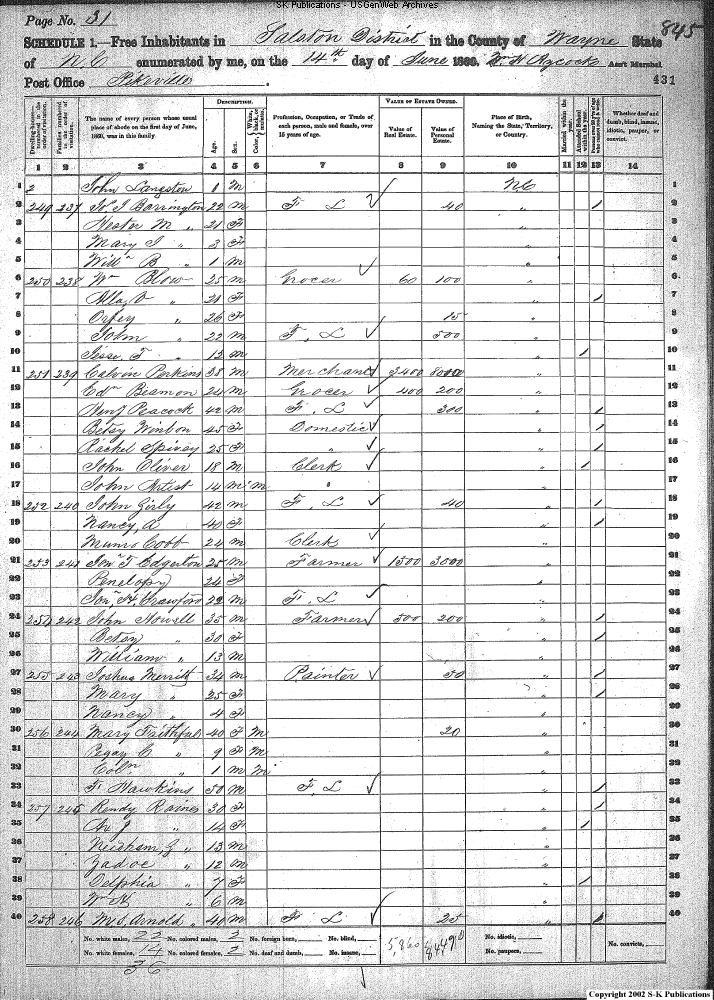 SK Publications - USGenWeb Archives
Page No. 31
845
SCHEDULE 1.—Free Inhabitants in Salston District in the County of Wayne State
of N C enumerated by me, on the 14th day of June 1860. W. H. Aycock Ass't Marshal
Post Office Pikeville.
431
Dwelling-houses— numbered in the order of visitation.
Families numbered in the order of visitation.
The name of every person whose usual place of abode on the first day of June, 1860, was in this family.
DESCRIPTION.
Age.
Sex.
Color, White, black, or mulatto.
Profession, Occupation, or Trade of each person, male and female, over 15 years of age.
VALUE OF ESTATE OWNED.
Value of Real Estate.
Value of Personal Estate.
Place of Birth, Naming the State, Territory, or Country.
Married within the year.
Attended School within the year.
Whether deaf and dumb, blind, insane, idiotic, pauper, or convict.
1 2 3 4 5 6 7 8 9 10 11 12 13 14
1 2 John Langston 1 M N C 1
2 249 237 Barrington 22 M F L 40 " / 2
3 Hester M " 21 F " 3
4 Mary " 3 F " 4
5 Will B " 1 M " 5
6 250 238 Wm Blow 25 M Grocer 60 100 " 6
7 " 21 F " / 7
8 " 26 F 15 " 8
9 John " 22 M F. L 500 " 9
10 Jesse T " 12 M " / 10
11 251 239 Calvin Perkins 38 M Merchant 2400 " 11
12 Edn Beamon 24 M Grocer 400 200 " 12
13 Henj Peacock 42 M F. L 300 " / 13
14 Betsy Winbon 45 F Domestic " / 14
15 Rachel Spivey 25 F " " / 15
16 John Oliver 18 M Clerk " / 16
17 John Artist 14 M M " " 17
18 252 240 John Girly 42 M F. L 40 " / 18
19 Nancy, A 40 F " / 19
20 Munro Cobb 24 M Clerk " 20
21 253 241 Jon T Edgerton 25 M Farmer 1500 3000 " 21
22 Penelopy 24 F " 22
23 Jon H, Crawford 22 M F. L " 23
24 254 242 John Howell 35 M Farmer 500 200 " / 24
25 Betsy " 30 F " / 25
26 William " 13 M " 26
27 255 243 Joshua Merritt 34 M Painter 50 " / 27
28 Mary " 25 F " / 28
29 Nancy " 4 F " 29
30 256 244 Mary Faithful 40 F M 20 " 30
31 Pegay C " 9 F M " 31
32 Coln " 1 M M " 32
33 F. Hawkins 50 M F. L " / 33
34 257 245 Rendy Raines 30 F " / 34
35 " 14 F " / 35
36 Needham, G " 13 M " 36
37 Zadoc " 12 M " 37
38 Delphia " 7 F " / 38
39 Wm H, " 6 M " 39
40 258 246 Arnold " 40 M F L 25 " / 40
No. white males, 22 No. colored males, 2 No. foreign born, No. blind, 5,860 No. idiotic,
No. white females, 14 No. colored females, 2 No. deaf and dumb, No. insane, No. paupers, No. convicts,
36
Copyright 2002 S-K Publications